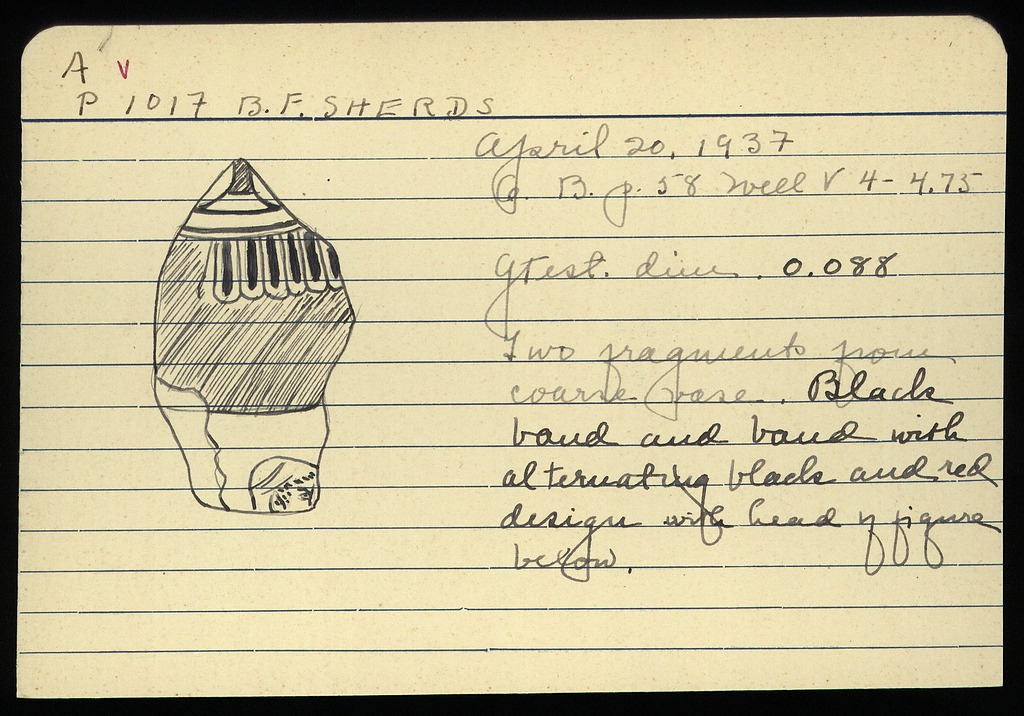 A v
P 1017 B.F. SHERDS
April 20, 1937
B. p. 58 Well V 4-4.75
Gtest. dim. 0.088
Two fragments from
coarse vase. Black
band and band with
alternating black and red
design with head of figure
below.